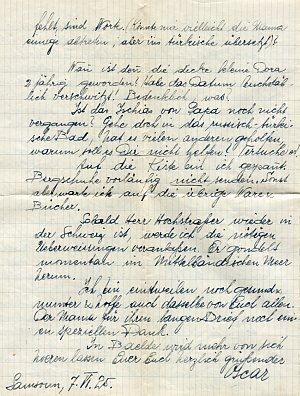 fehlt, sind Work. (Könnte mir vielleicht die Mama
einige abtreten, aber ins türkische übersetzt)!
Wan ist den die dicke kleine Dora
2 jährig geworden? Habe das Datum buchstäb-
lich verschwitzt! Bedenklich was.
Ist das Ischias von Papa noch nicht
vergangen? Gehe doch in das russisch-türki-
sche Bad, hat so vielen anderen geholfen,
warum soll es Dir nicht helfen! Versuche es!
Auf die Kiste bin ich gespant.
Bergschuhe vorläufig nicht senden. Sonst
aber warte ich auf die übrige Ware
Bücher.
Sobald Herr Hochstrasser wieder in
der Schweiz ist, werde ich die nötigen
Ueberweisungen veranlassen. Er gondelt
momentan im Mittelländischen Meer
herum.
Ich bin einstweilen noch gesund &
munter & hoffe auch dasselbe von Euch allen.
Der Mama für ihren langen Brief noch ein-
en speziellen Dank.
In Baelde wird mehr von sich
hoeren lassen Euer Euch herzlich grüßender
Oscar
Samsoun, 7. II. 25.